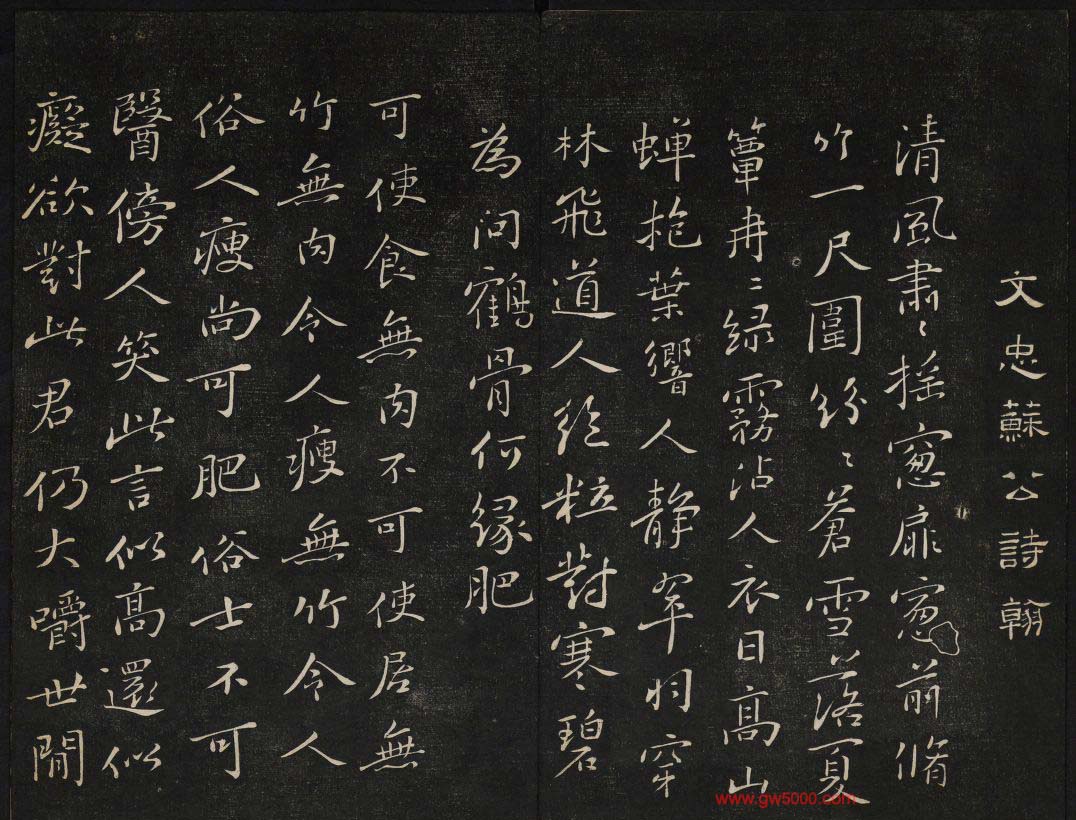 文忠蘇公詩翰
清風肅〻搖窓扉窓前脩
竹一尺圍紛〻蒼雪落夏
簟冉〻綠霧沾人衣日高山
蟬抱葉響人靜翠羽穿
林飛道人絶粒對寒碧
為問鶴骨何緣肥
可使食無肉不可使居無
竹無肉令人瘦無竹令人
俗人瘦尚可肥俗士不可
醫傍人笑此言似高還似
癡欲對此君仍大嚼世間
www.gw5000.com